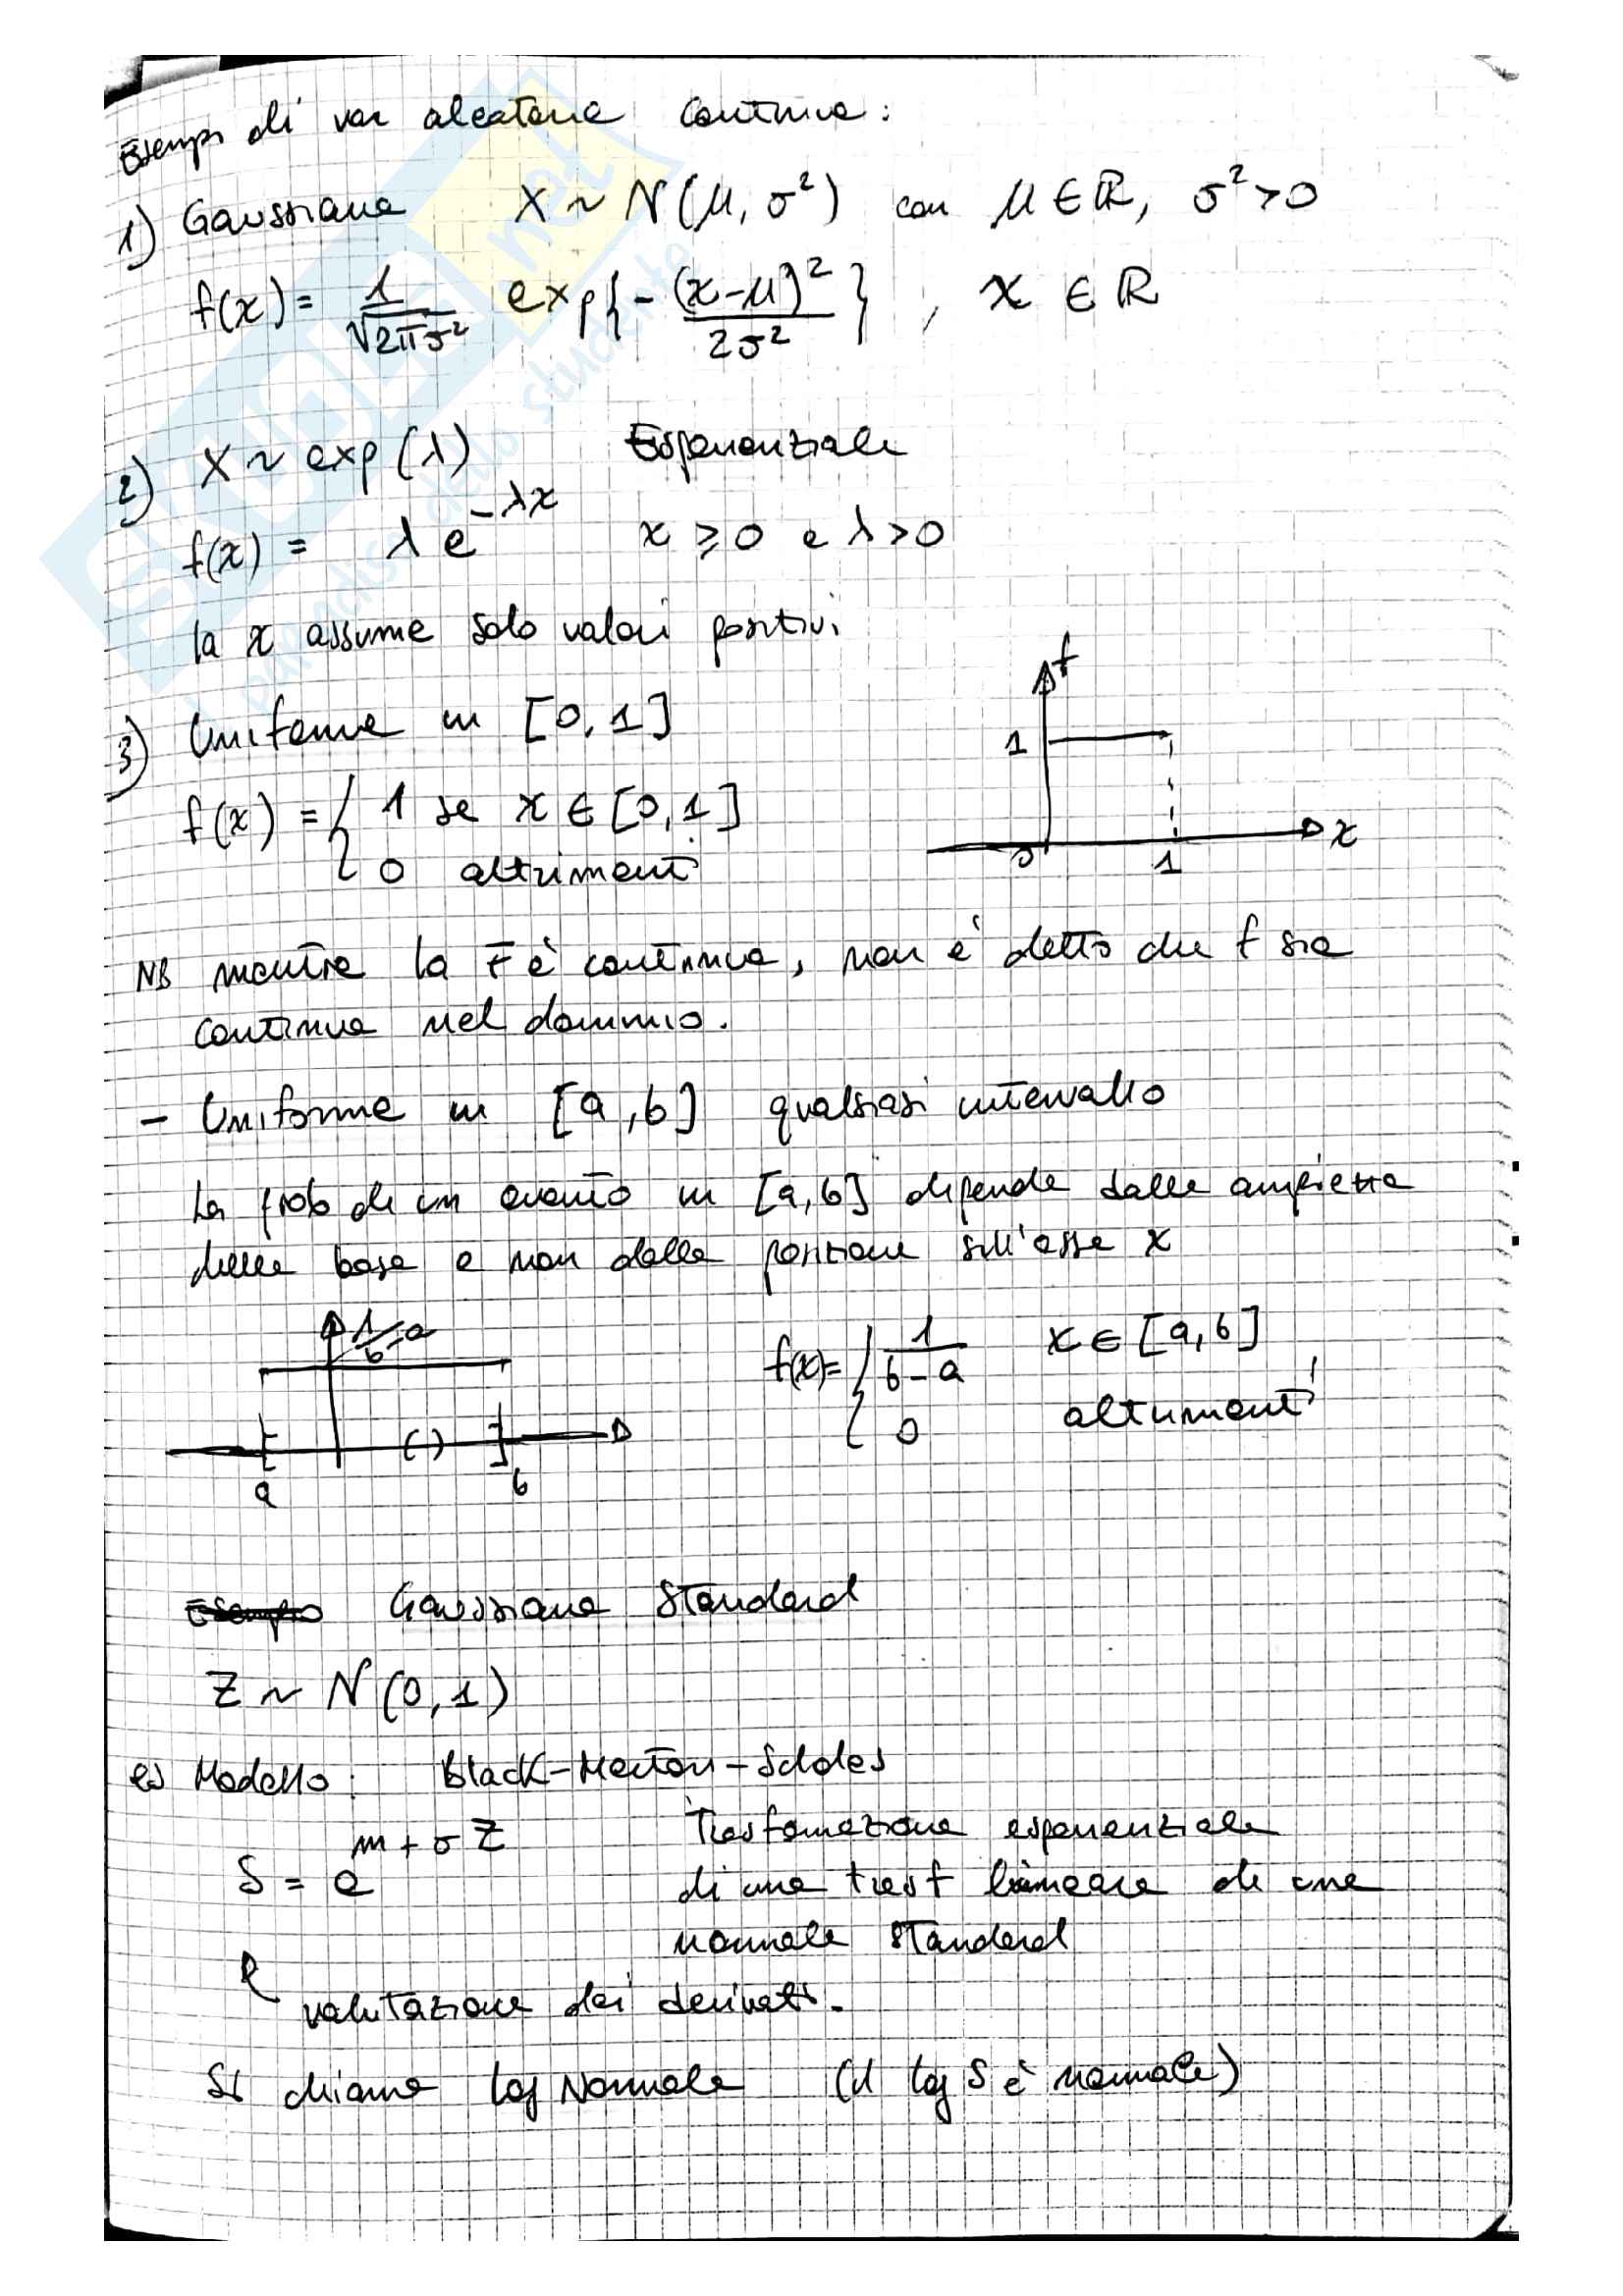 Esempi di var aleatorie continue:
1) Gaussiana X ~ N(μ, σ²) con μ ∈ ℝ, σ² > 0
f(x) = 1/√2πσ² exp{ - (x-μ)²/2σ² } , x ∈ ℝ
2) X ~ exp(λ) Esponenziale
f(x) = λ e^{-λx} x ≥ 0 e λ > 0
la x assume solo valori positivi
3) Uniforme in [0,1]
f(x) = { 1 se x ∈ [0,1]
0 altrimenti
f
1
0 1 x
NB mentre la F è continua, non è detto che f sia
continua nel dominio.
- Uniforme in [a,b] qualsiasi intervallo
La prob di un evento in [a,b] dipende dalla ampiezza
della base e non dalla posizione sull'asse x
1/b-a
( )
a b
f(x) = { 1/b-a x ∈ [a,b]
0 altrimenti
Esempio Gaussiana Standard
Z ~ N(0,1)
es Modello: Black-Merton-Scholes
S = e^{m+σZ} Trasformazione esponenziale
di una trasf lineare di una
normale standard
valutazione dei derivati.
Si chiama log Normale (il log S è normale)
SKUOLA.net
il paradiso dello studente